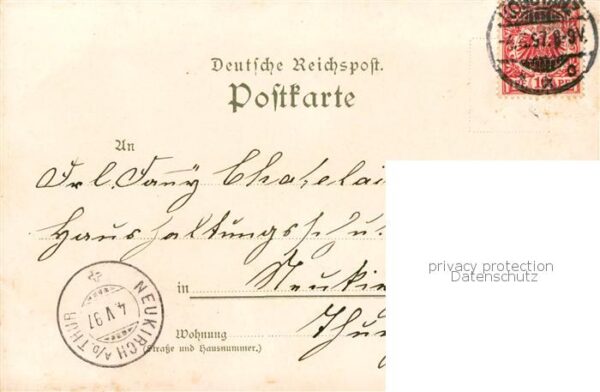 Deutsche Reichspost.
Postkarte
An
Frl. Fanny Chatelai
Haushaltungsschu
in Neukir
Wohnung Thu
(Straße und Hausnummer.)
NEUKIRCH A/D THUR
4.V.97
privacy protection
Datenschutz